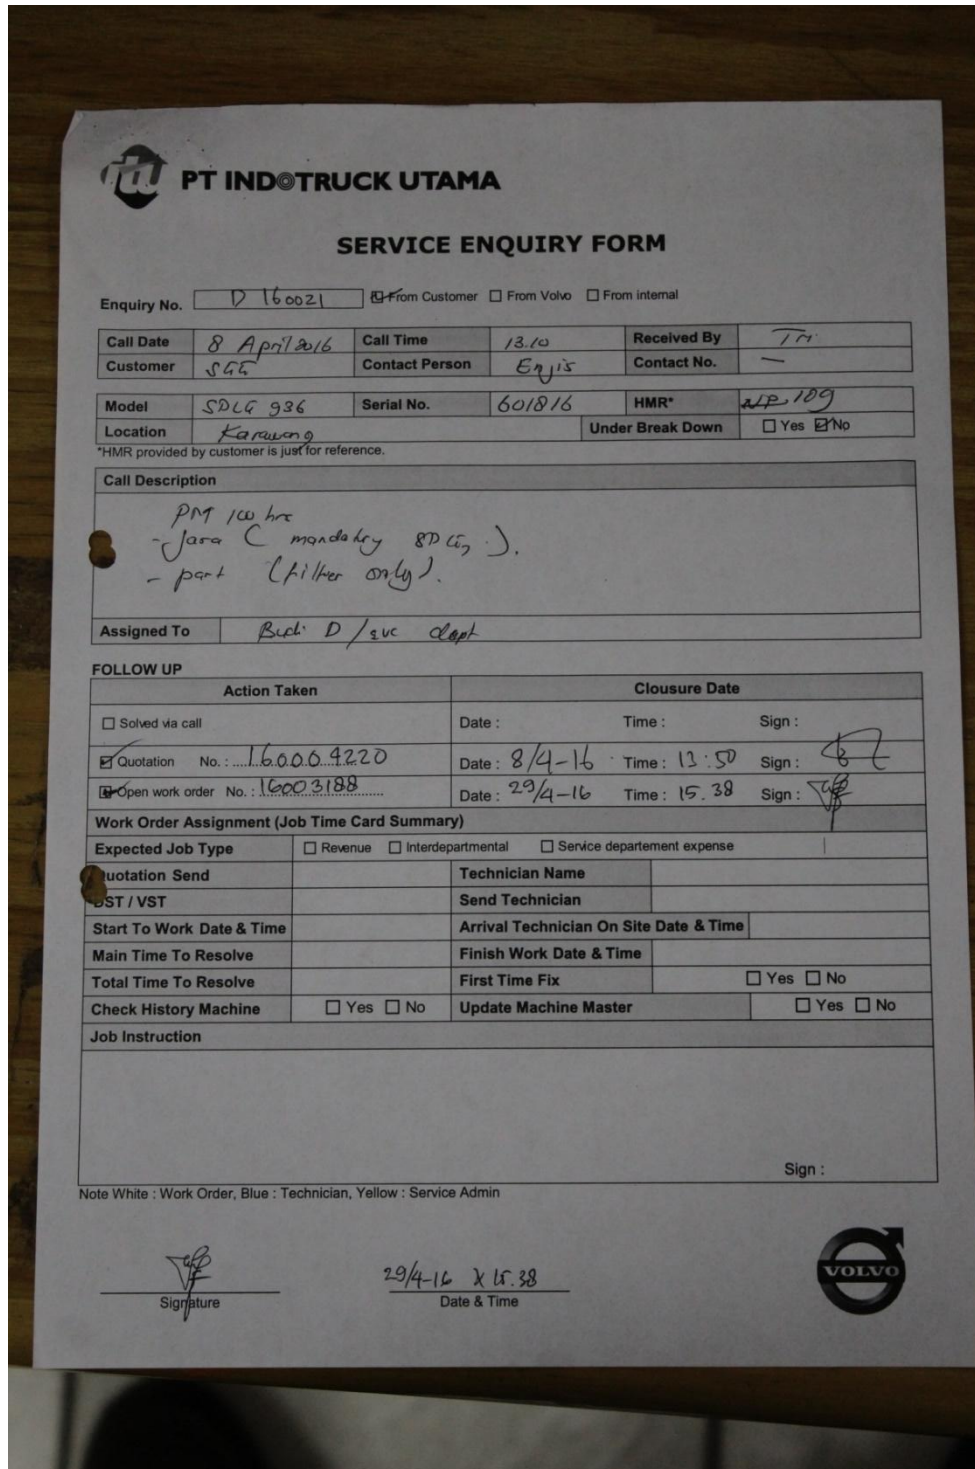 itu PT INDOTRUCK UTAMA
SERVICE ENQUIRY FORM
Enquiry No. D 160021 ☑ From Customer ☐ From Volvo ☐ From internal
Call Date 8 April 2016 Call Time 13.10 Received By Tri
Customer SGG Contact Person Enjis Contact No. —
Model SDLG 936 Serial No. 601816 HMR* 109
Location Karawang Under Break Down ☐ Yes ☑ No
*HMR provided by customer is just for reference.
Call Description
PM 100 hrs
- Jasa ( mandatory SDLG ).
- part (filter only).
Assigned To Budi D / svc dept
FOLLOW UP
Action Taken Clousure Date
☐ Solved via call Date : Time : Sign :
☑ Quotation No. : 160004220 Date : 8/4-16 Time : 13:50 Sign :
☑ Open work order No. : 16003188 Date : 29/4-16 Time : 15.38 Sign :
Work Order Assignment (Job Time Card Summary)
Expected Job Type ☐ Revenue ☐ Interdepartmental ☐ Service departement expense
Quotation Send Technician Name
DST / VST Send Technician
Start To Work Date & Time Arrival Technician On Site Date & Time
Main Time To Resolve Finish Work Date & Time
Total Time To Resolve First Time Fix ☐ Yes ☐ No
Check History Machine ☐ Yes ☐ No Update Machine Master ☐ Yes ☐ No
Job Instruction
Sign :
Note White : Work Order, Blue : Technician, Yellow : Service Admin
29/4-16 X 15.38
Signature Date & Time
VOLVO